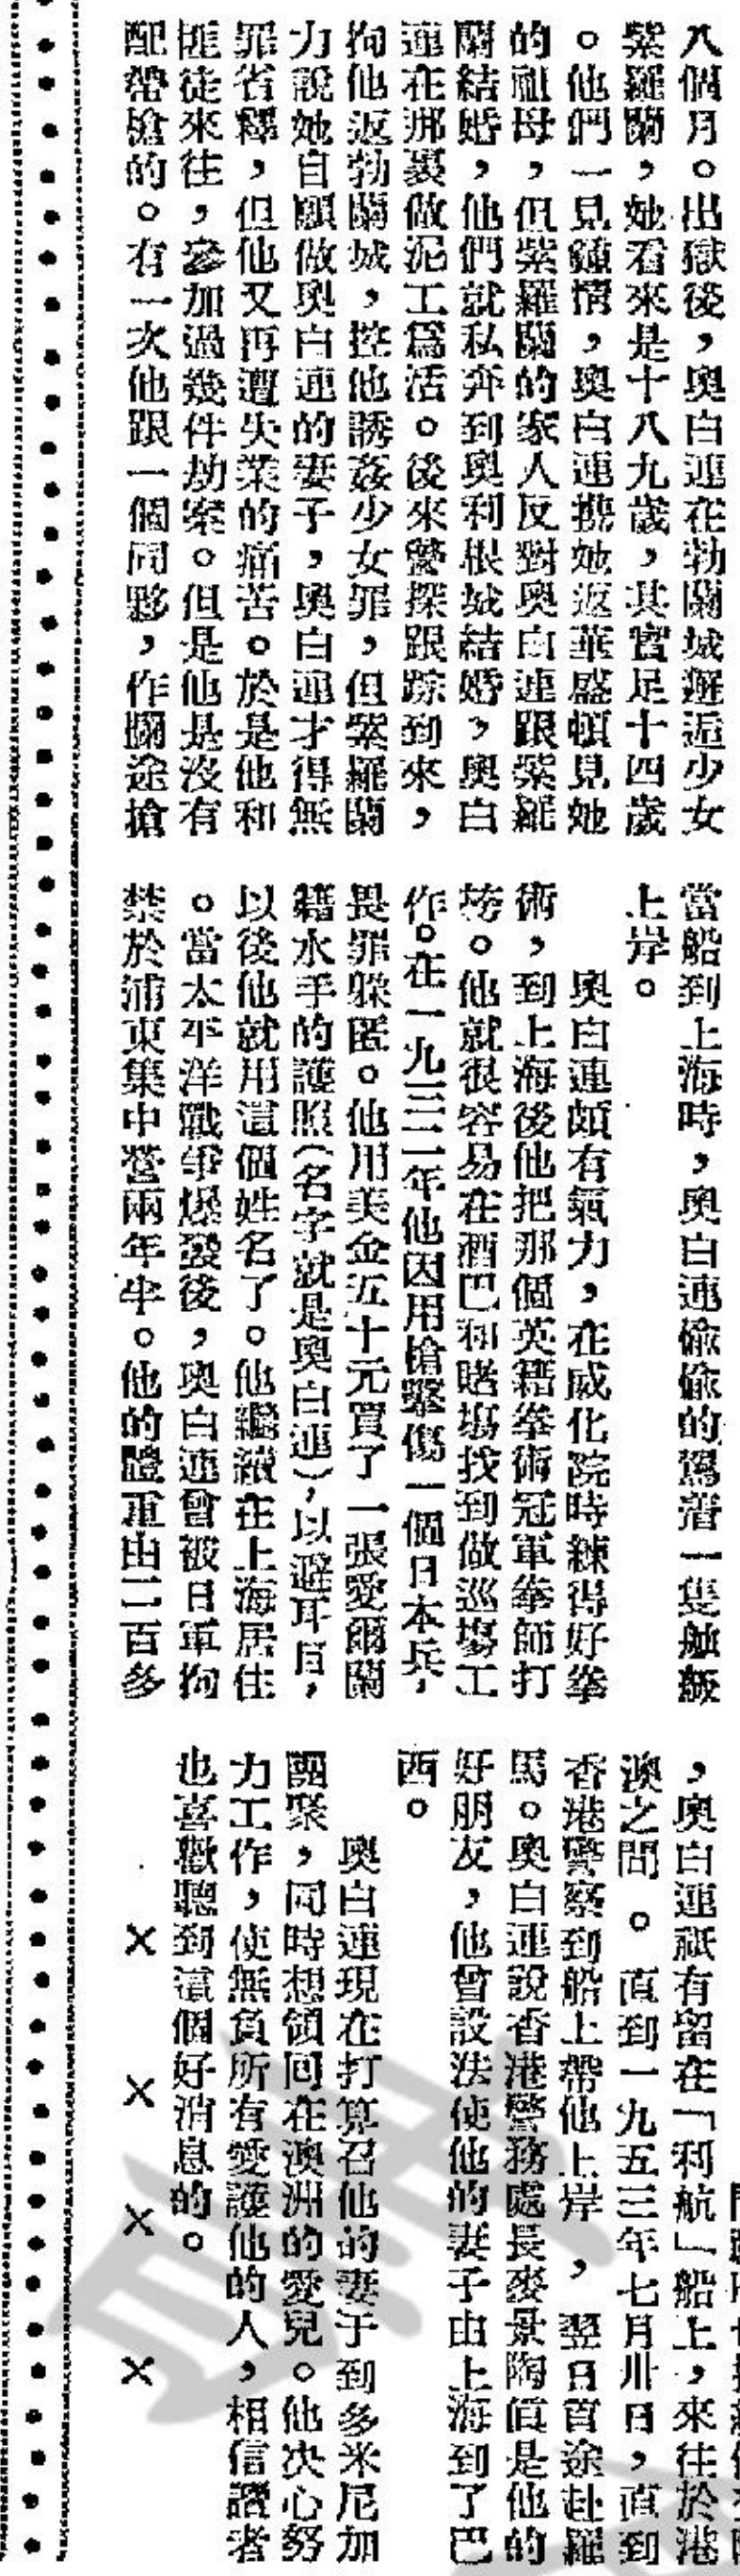 八個月。出獄後，奧白連在勃蘭城邂逅少女
紫羅蘭，她看來是十八九歲，其實足十四歲
。他們一見鍾情，奧白連携她返華盛頓見她
的祖母，但紫羅蘭的家人反對奧白連跟紫羅
蘭結婚，他們就私奔到奧利根城結婚，奧白
連在那裏做泥工爲活。後來警探跟踪到來，
拘他返勃蘭城，控他誘姦少女罪，但紫羅蘭
力說她自願做奧白連的妻子，奧白連才得無
罪省釋，但他又再遭失業的痛苦。於是他和
匪徒來往，參加過幾件劫案。但是他是沒有
配帶槍的。有一次他跟一個同夥，作攔途搶
當船到上海時，奧白連偷偷的駕着一隻舢舨
上岸。
奧白連頗有氣力，在感化院時練得好拳
術，到上海後他把那個英籍拳術冠軍拳師打
垮。他就很容易在酒巴和賭塲找到做巡塲工
作。在一九三二年他因用槍擊傷一個日本兵，
畏罪躲匿。他用美金五十元買了一張愛爾蘭
籍水手的護照（名字就是奧白連），以避耳目，
以後他就用這個姓名了。他繼續在上海居住
。當太平洋戰爭爆發後，奧白連曾被日軍拘
禁於浦東集中營兩年半。他的體重由二百多
，奧白連祇有留在「利航」船上，來往於港
澳之間。直到一九五三年七月卅日，直到
香港警察到船上帶他上岸，翌日首途赴羅
馬。奧白連說香港警務處長麥景陶值是他的
好朋友，他曾設法使他的妻子由上海到了巴
西。
奧白連現在打算召他的妻子到多米尼加
團聚，同時想領回在澳洲的愛兒。他决心努
力工作，使無負所有愛護他的人，相信讀者
也喜歡聽到這個好消息的。
× × × ×